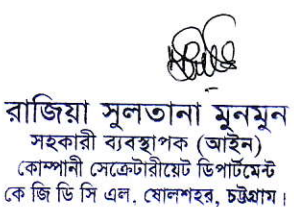 রাজিয়া সুলতানা মুনমুন
সহকারী ব্যবস্থাপক (আইন)
কোম্পানী সেক্রেটারীয়েট ডিপার্টমেন্ট
কে জি ডি সি এল, ষোলশহর, চট্টগ্রাম।